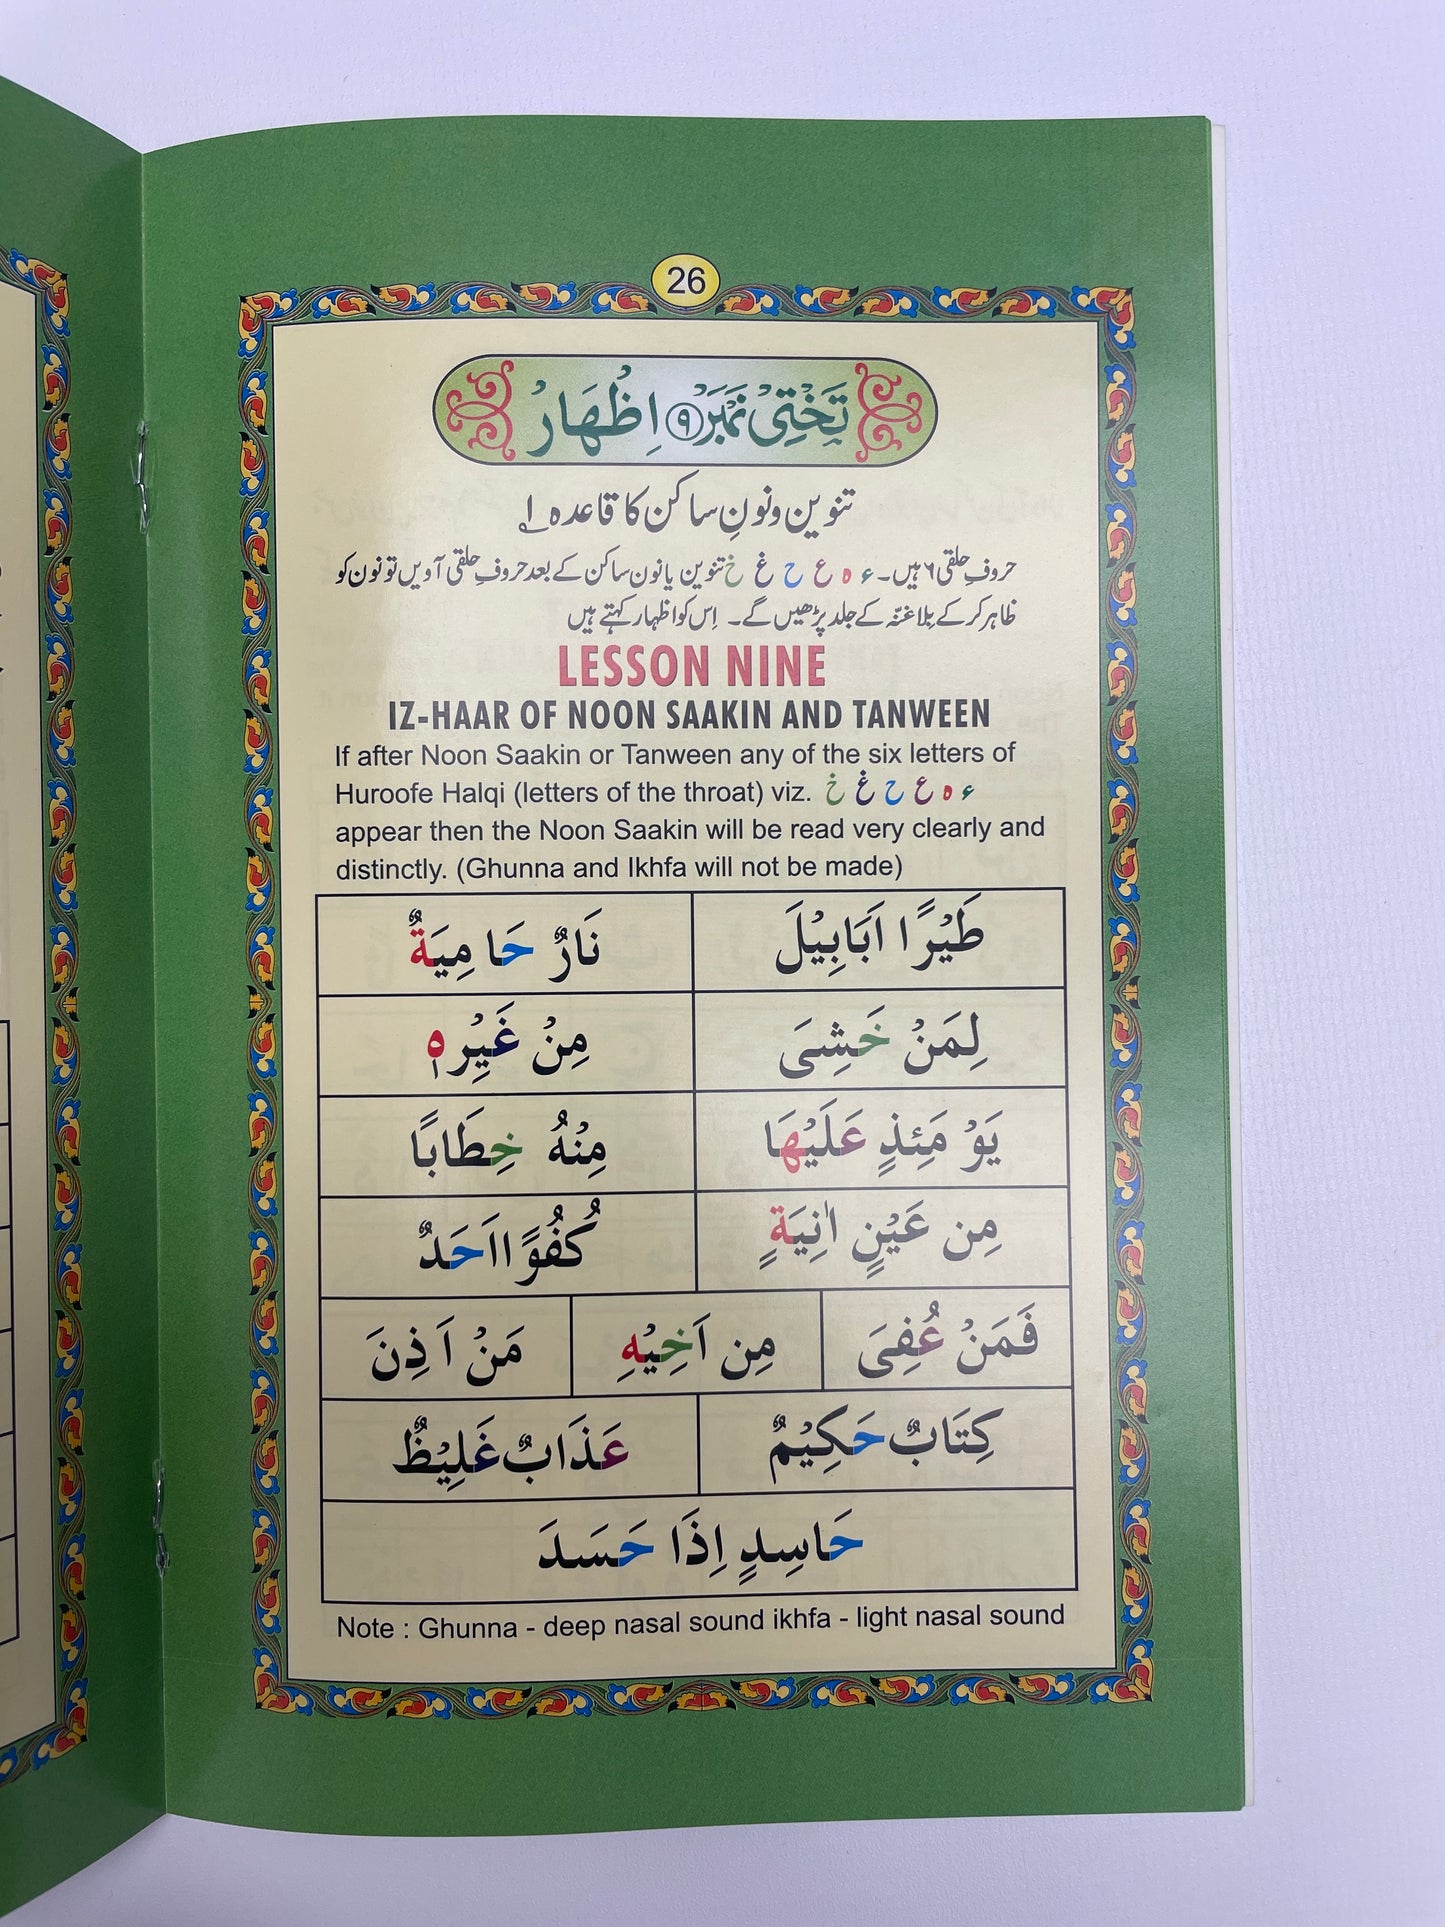 26
تَخْتِیْ نَمْبَرْ ۹ اِظْهَارْ
تنوین و نونِ ساکن کا قاعدہ ۱
حروفِ حلقی ۶ ہیں۔ ء ہ ع ح غ خ تنوین یا نون ساکن کے بعد حروفِ حلقی آویں تو نون کو
ظاہر کر کے بِلا غنّہ کے جلد پڑھیں گے۔ اِس کو اظہار کہتے ہیں
LESSON NINE
IZ-HAAR OF NOON SAAKIN AND TANWEEN
If after Noon Saakin or Tanween any of the six letters of
Huroofe Halqi (letters of the throat) viz. ء ہ ع ح غ خ
appear then the Noon Saakin will be read very clearly and
distinctly. (Ghunna and Ikhfa will not be made)
طَيْرًا اَبَابِيْلَ نَارٌ حَا مِيَةٌ
لِمَنْ خَشِىَ مِنْ غَيْرِهٖ
يَوْ مَئِذٍ عَلَيْهَا مِنْهُ خِطَابًا
مِن عَيْنٍ اٰنِيَةٍ كُفُوًا اَحَدٌ
فَمَنْ عُفِىَ مِن اَخِيْهِ مَنْ اَ ذِنَ
كِتَابٌ حَكِيْمٌ عَذَابٌ غَلِيْظٌ
حَاسِدٍ اِذَا حَسَدَ
Note : Ghunna - deep nasal sound ikhfa - light nasal sound